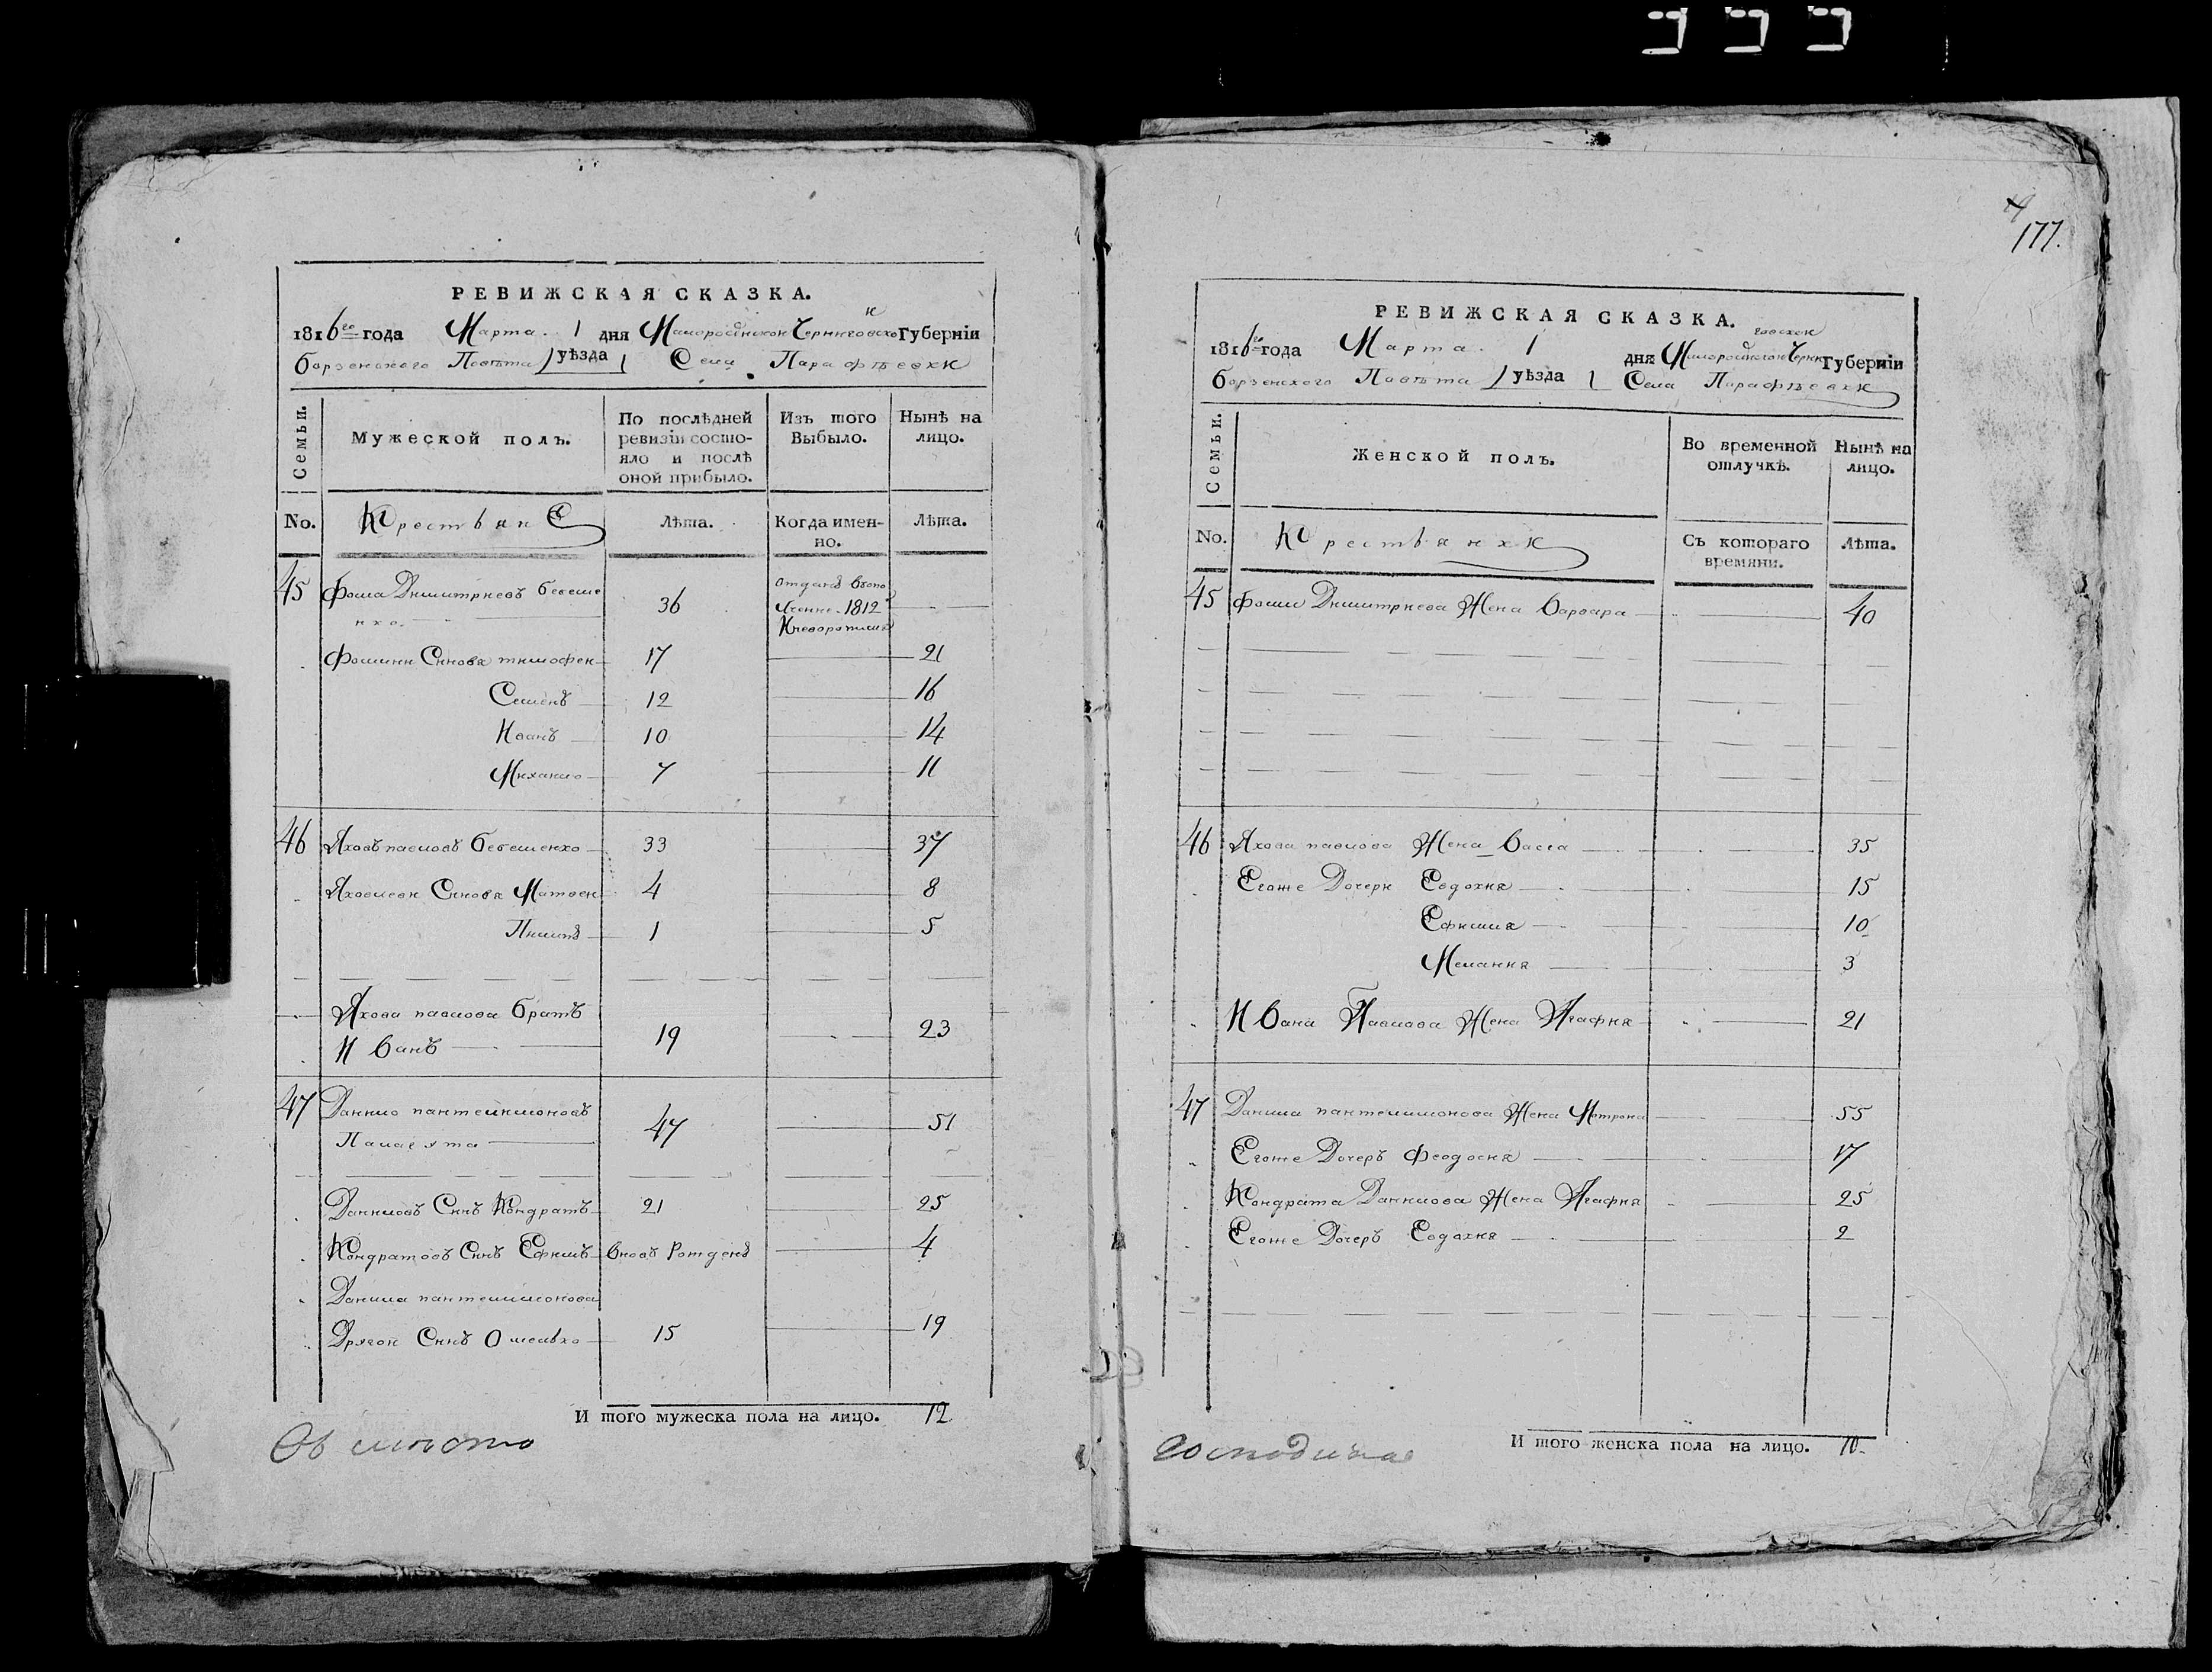 177.
РЕВИЖСКАЯ СКАЗКА.
1816го года Марта 1 дня Малоросійской Черниговской Губерніи
борзенского Повѣта / уѣзда / Села Парафѣевки
Семьи.
Мужеской полъ.
По послѣдней ревизіи состо-
яло и послѣ
оной прибыло.
Изъ того
Выбыло.
Нынѣ на
лицо.
No.
Крестьянѣ
Лѣта.
Когда имен-
но.
Лѣта.
45 Фома Дмитріевъ
36
1812
Фомини Сини Тимофей 17 21
Семенъ 12 16
Иванъ 10 14
Михаило 7 11
46 Яковъ павловъ 33 37
Яковлеви Матвей 4 8
1 5
Якова павлова братъ
Иванъ 19 23
47 Данило пантелимоновъ
47 51
Даниловъ Синъ Кондратъ 21 25
Кондратовъ Синъ Ефимъ вновь рожденъ 4
Данила пантелимонова
Другой Синъ Омелько 15 19
И того мужеска пола на лицо. 12
РЕВИЖСКАЯ СКАЗКА.
1816го года Марта 1 дня Малоросійской Черниговской Губерніи
борзенского Повѣта / уѣзда / Села Парафѣевки
Семьи.
Женской полъ.
Во временной
отлучкѣ.
Нынѣ на
лицо.
No.
Крестьянки
Съ котораго
времяни.
Лѣта.
45 Фоми Дмитріева Жена Варвара 40
46 Якова павлова Жена Васса 35
Егоже Дочери Евдокия 15
Ефимия 10
Мелания 3
Ивана Павлова Жена Агафия 21
47 Данила пантелимонова Жена Мотрона 55
Егоже Дочеръ Феодосия 17
Кондрата Данилова Жена Агафия 25
Егоже Дочеръ Евдокия 2
И того женска пола на лицо. 10